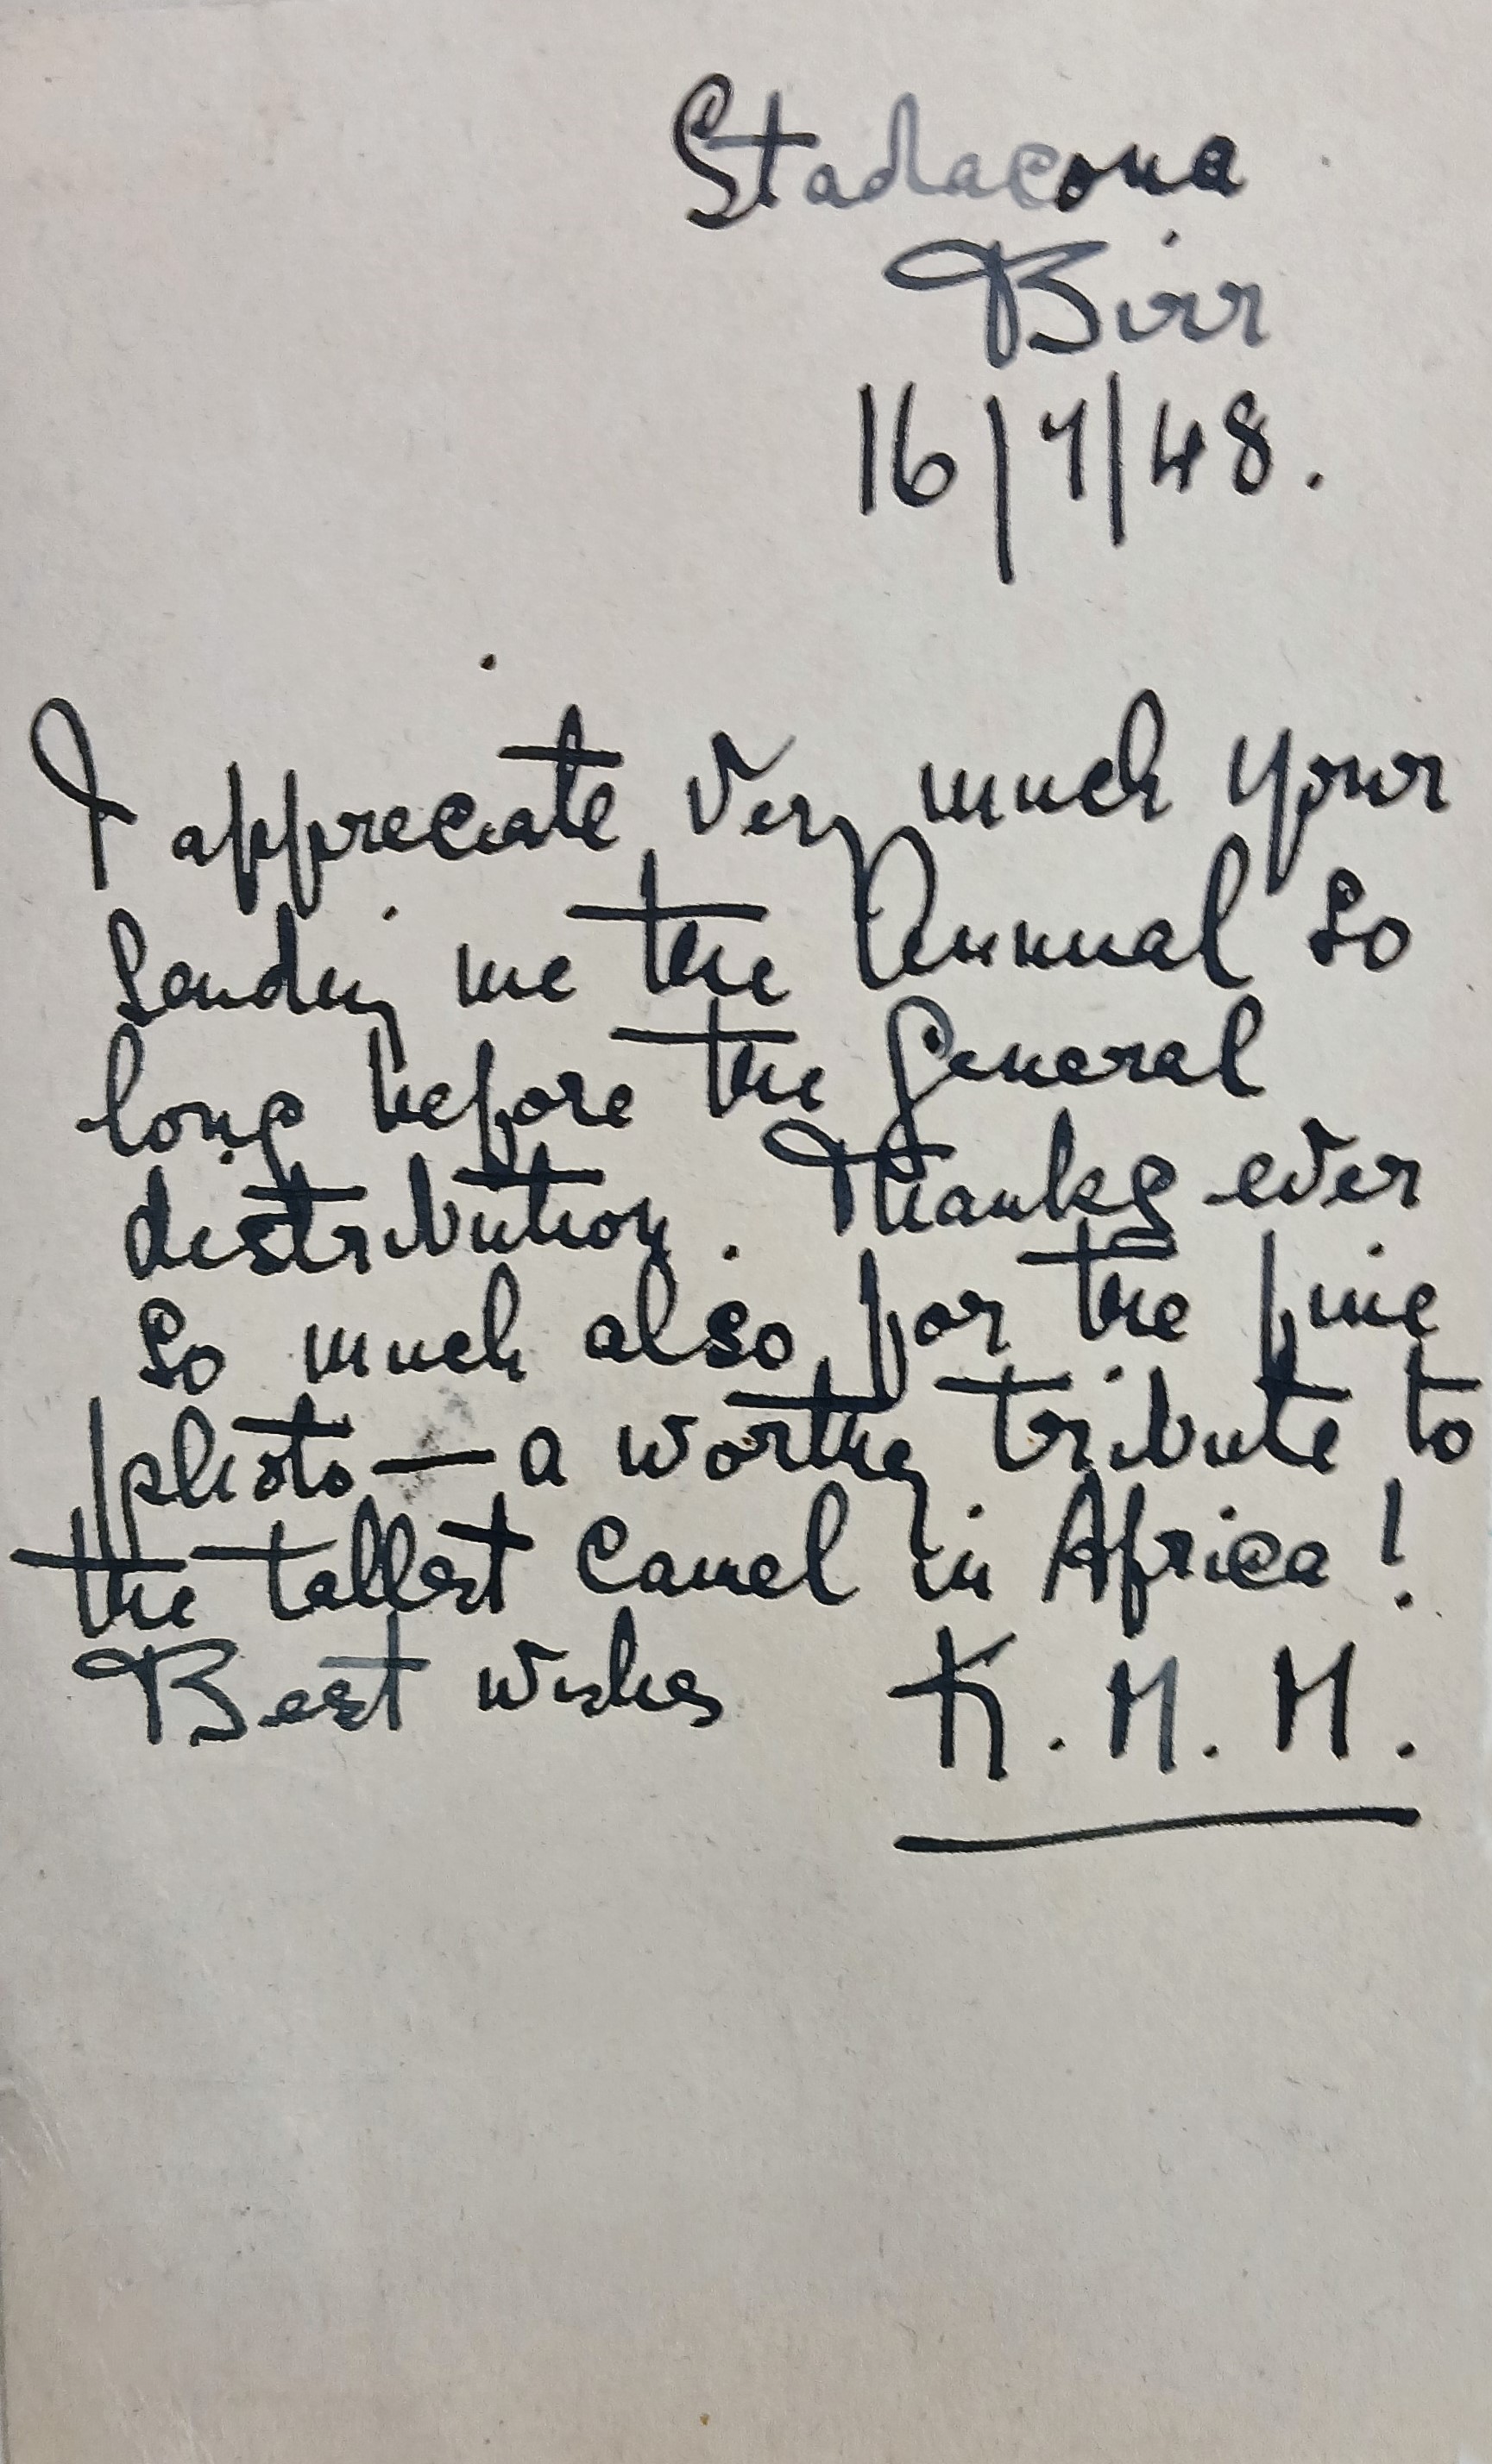 Stadacona
Birr
16/7/48.
I appreciate very much your
sending me the Annual so
long before the General
distribution. Thanks ever
so much also for the fine
photo — a worthy tribute to
the tallest Camel in Africa!
Best wishes K. M. M.